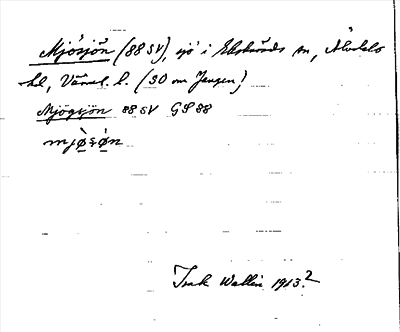 Mjösjön (88 SV), sjö i Ekshärads sn, Älvdals
hd, Värml. l. (SO om Jangen)
Mjögsjön 88 SV GS 88
mjø̀sø̀n
Isak Wallin 1913?